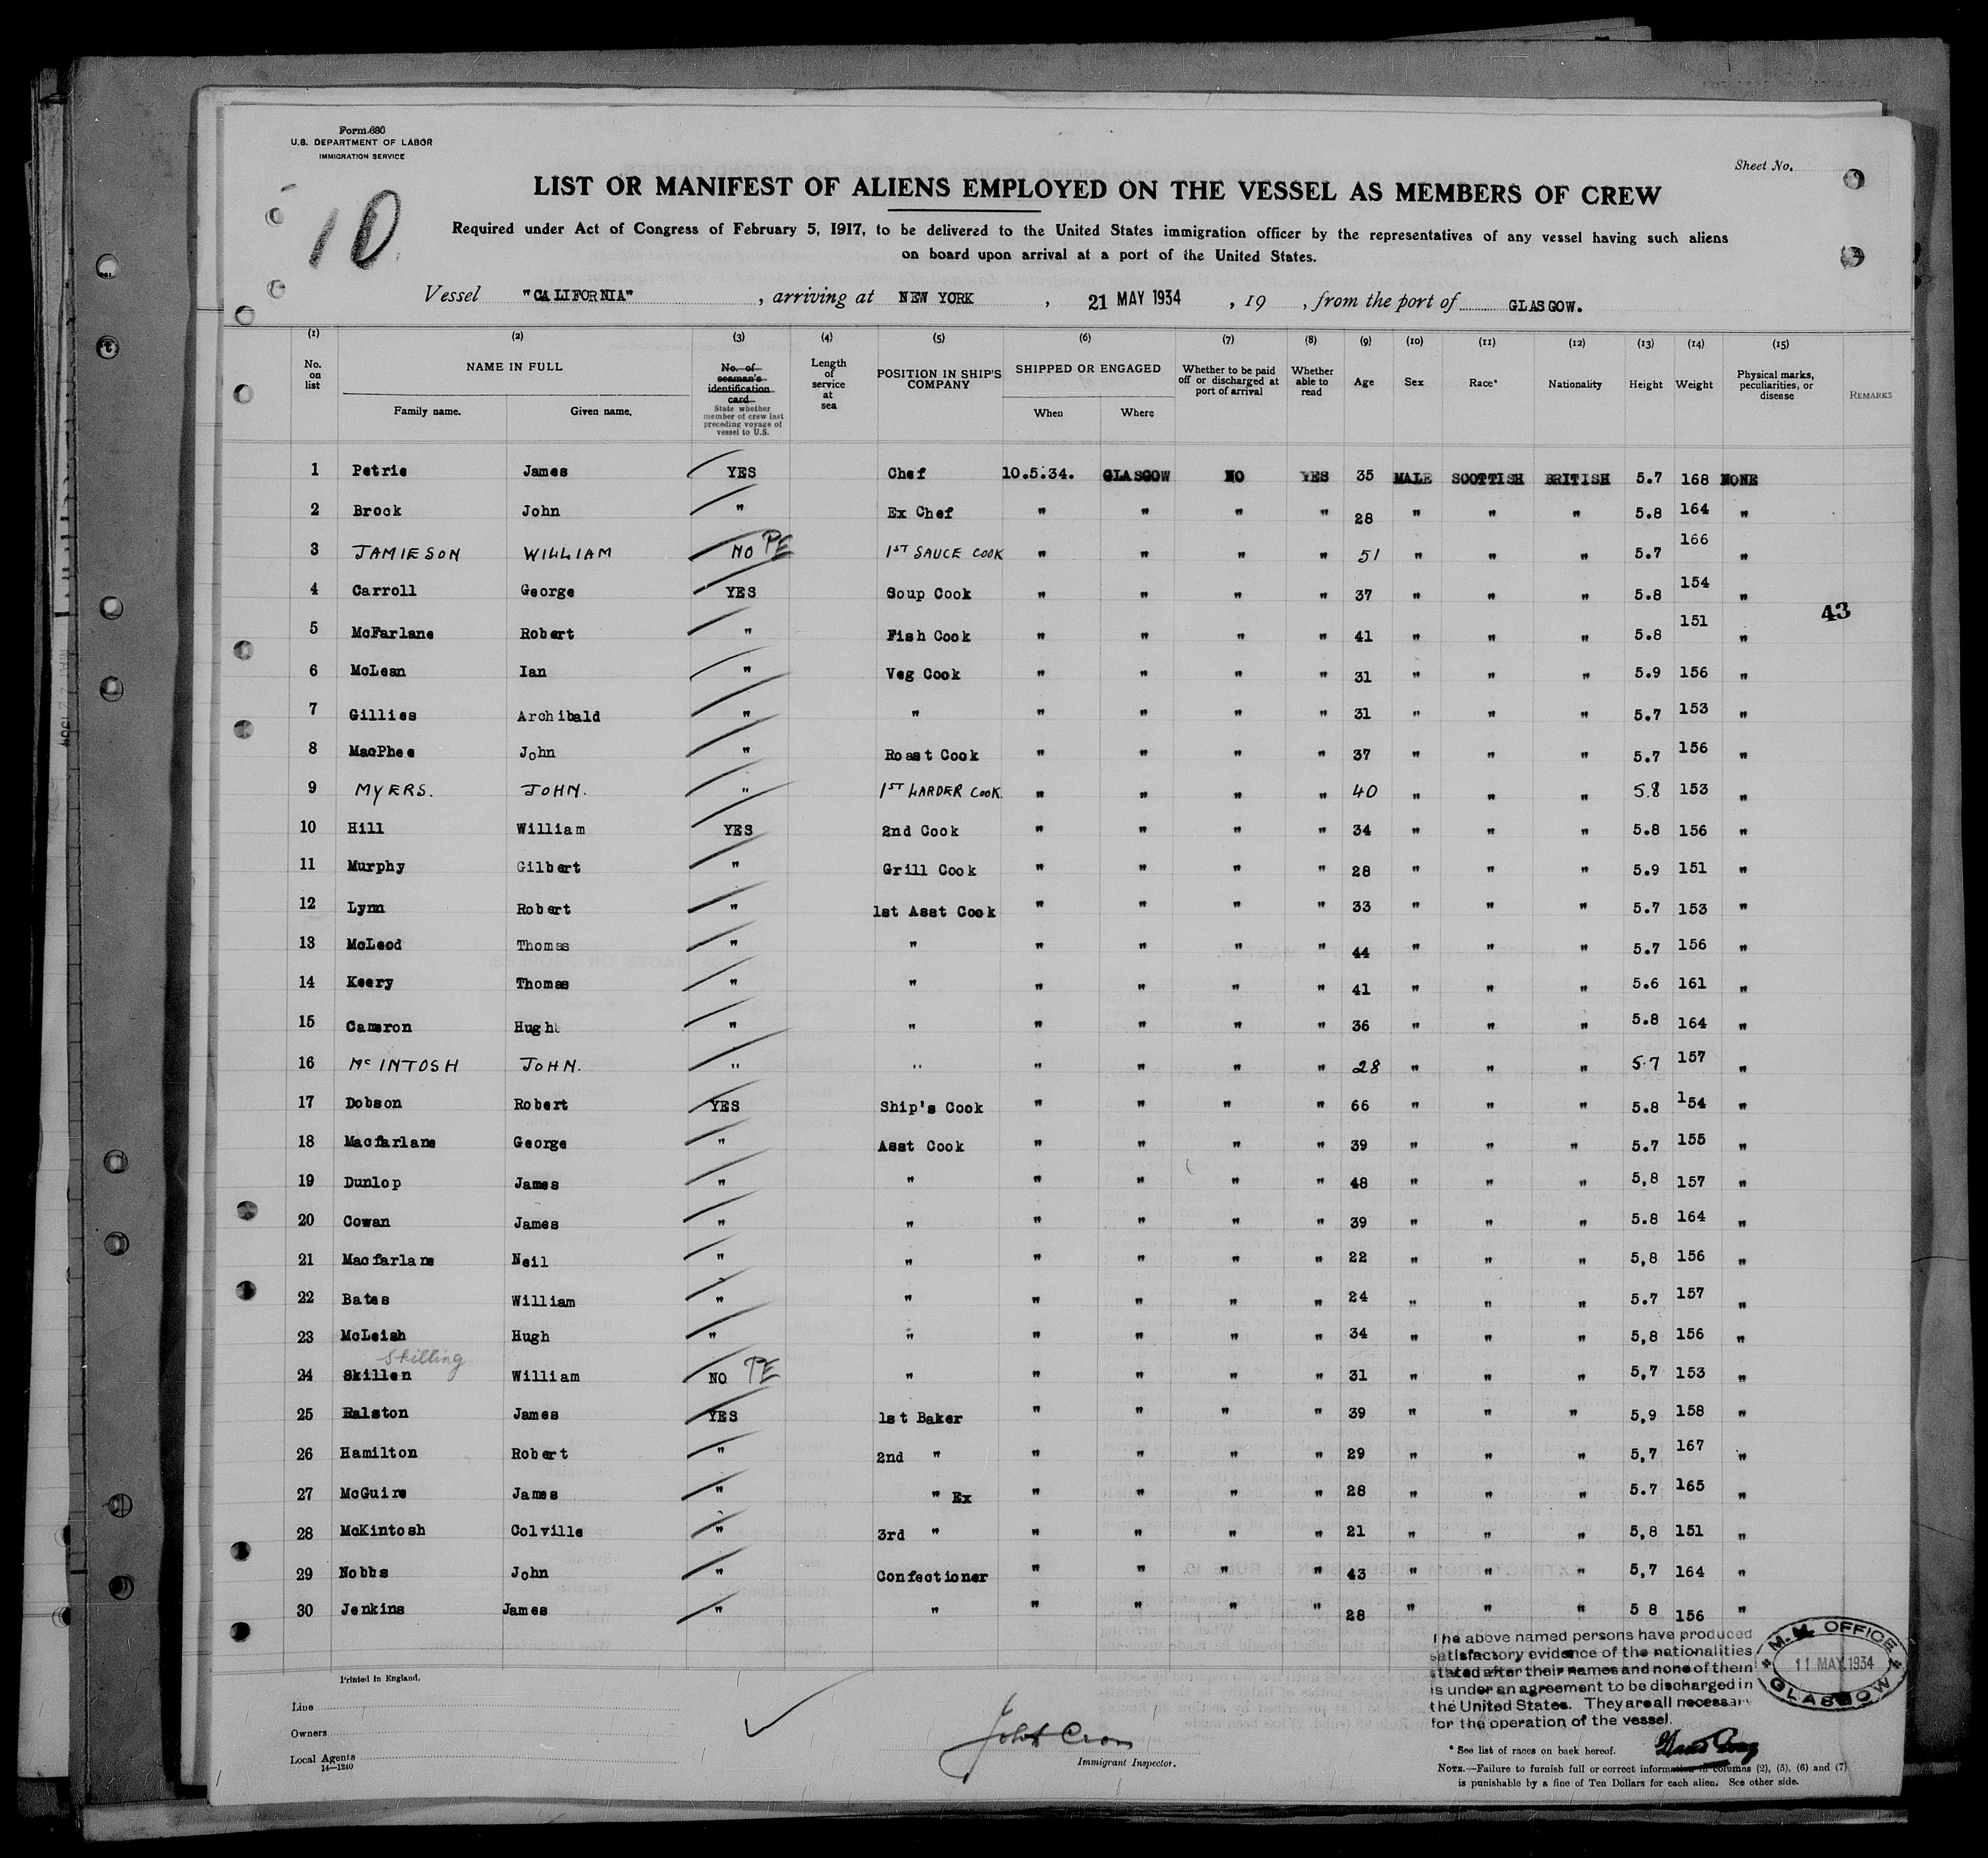 Form 680
U.S. DEPARTMENT OF LABOR
IMMIGRATION SERVICE
Sheet No.
10
LIST OR MANIFEST OF ALIENS EMPLOYED ON THE VESSEL AS MEMBERS OF CREW
Required under Act of Congress of February 5, 1917, to be delivered to the United States immigration officer by the representatives of any vessel having such aliens
on board upon arrival at a port of the United States.
Vessel "CALIFORNIA", arriving at NEW YORK, 21 MAY 1934, 19 , from the port of GLASGOW.
(1) (2) (3) (4) (5) (6) (7) (8) (9) (10) (11) (12) (13) (14) (15)
No. on list NAME IN FULL Family name. Given name. No. of seaman's identification card State whether member of crew last preceding voyage of vessel to U.S. Length of service at sea POSITION IN SHIP'S COMPANY SHIPPED OR ENGAGED When Where Whether to be paid off or discharged at port of arrival Whether able to read Age Sex Race* Nationality Height Weight Physical marks, peculiarities, or disease REMARKS
1 Petrie James YES Chef 10.5.34. GLASGOW NO YES 35 MALE SCOTTISH BRITISH 5.7 168 NONE
2 Brock John " Ex Chef " " " " 28 " " " 5.8 164 "
3 JAMIESON WILLIAM NO PE 1ST SAUCE COOK " " " " 51 " " " 5.7 166 "
4 Carroll George YES Soup Cook " " " " 37 " " " 5.8 154 "
43
5 McFarlane Robert " Fish Cook " " " " 41 " " " 5.8 151 "
6 McLean Ian " Veg Cook " " " " 31 " " " 5.9 156 "
7 Gillies Archibald " " " " " " 31 " " " 5.7 153 "
8 MacPhee John " Roast Cook " " " " 37 " " " 5.7 156 "
9 MYERS. JOHN. " 1ST LARDER COOK. " " " " 40 " " " 5.8 153 "
10 Hill William YES 2nd Cook " " " " 34 " " " 5.8 156 "
11 Murphy Gilbert " Grill Cook " " " " 28 " " " 5.9 151 "
12 Lynn Robert " 1st Asst Cook " " " " 33 " " " 5.7 153 "
13 McLeod Thomas " " " " " " 44 " " " 5.7 156 "
14 Keery Thomas " " " " " " 41 " " " 5.6 161 "
15 Cameron Hugh " " " " " " 36 " " " 5.8 164 "
16 Mc INTOSH JOHN. " " " " " " 28 " " " 5.7 157 "
17 Dobson Robert YES Ship's Cook " " " " 66 " " " 5.8 154 "
18 Macfarlane George " Asst Cook " " " " 39 " " " 5.7 155 "
19 Dunlop James " " " " " " 48 " " " 5,8 157 "
20 Cowan James " " " " " " 39 " " " 5.8 164 "
21 Macfarlane Neil " " " " " " 22 " " " 5,8 156 "
22 Bates William " " " " " " 24 " " " 5.7 157 "
23 McLeish Hugh " " " " " " 34 " " " 5,8 156 "
Skilling
24 Skillen William NO PE " " " " " 31 " " " 5,7 153 "
25 Ralston James YES 1st Baker " " " " 39 " " " 5,9 158 "
26 Hamilton Robert " 2nd " " " " " 29 " " " 5,7 167 "
27 McGuire James " " Ex " " " " 28 " " " 5.7 165 "
28 McKintosh Colville " 3rd " " " " " 21 " " " 5,8 151 "
29 Nobbs John " Confectioner " " " " 43 " " " 5,7 164 "
30 Jenkins James " " " " " " 28 " " " 5 8 156 "
The above named persons have produced
satisfactory evidence of the nationalities
stated after their names and none of them
is under an agreement to be discharged in
the United States. They are all necessary
for the operation of the vessel.
M.M. OFFICE
11 MAY 1934
GLASGOW
Printed in England.
Line
Owners
Local Agents
14—1240
John Cron
Immigrant Inspector.
* See list of races on back hereof.
NOTE.—Failure to furnish full or correct information in columns (2), (5), (6) and (7)
is punishable by a fine of Ten Dollars for each alien. See other side.